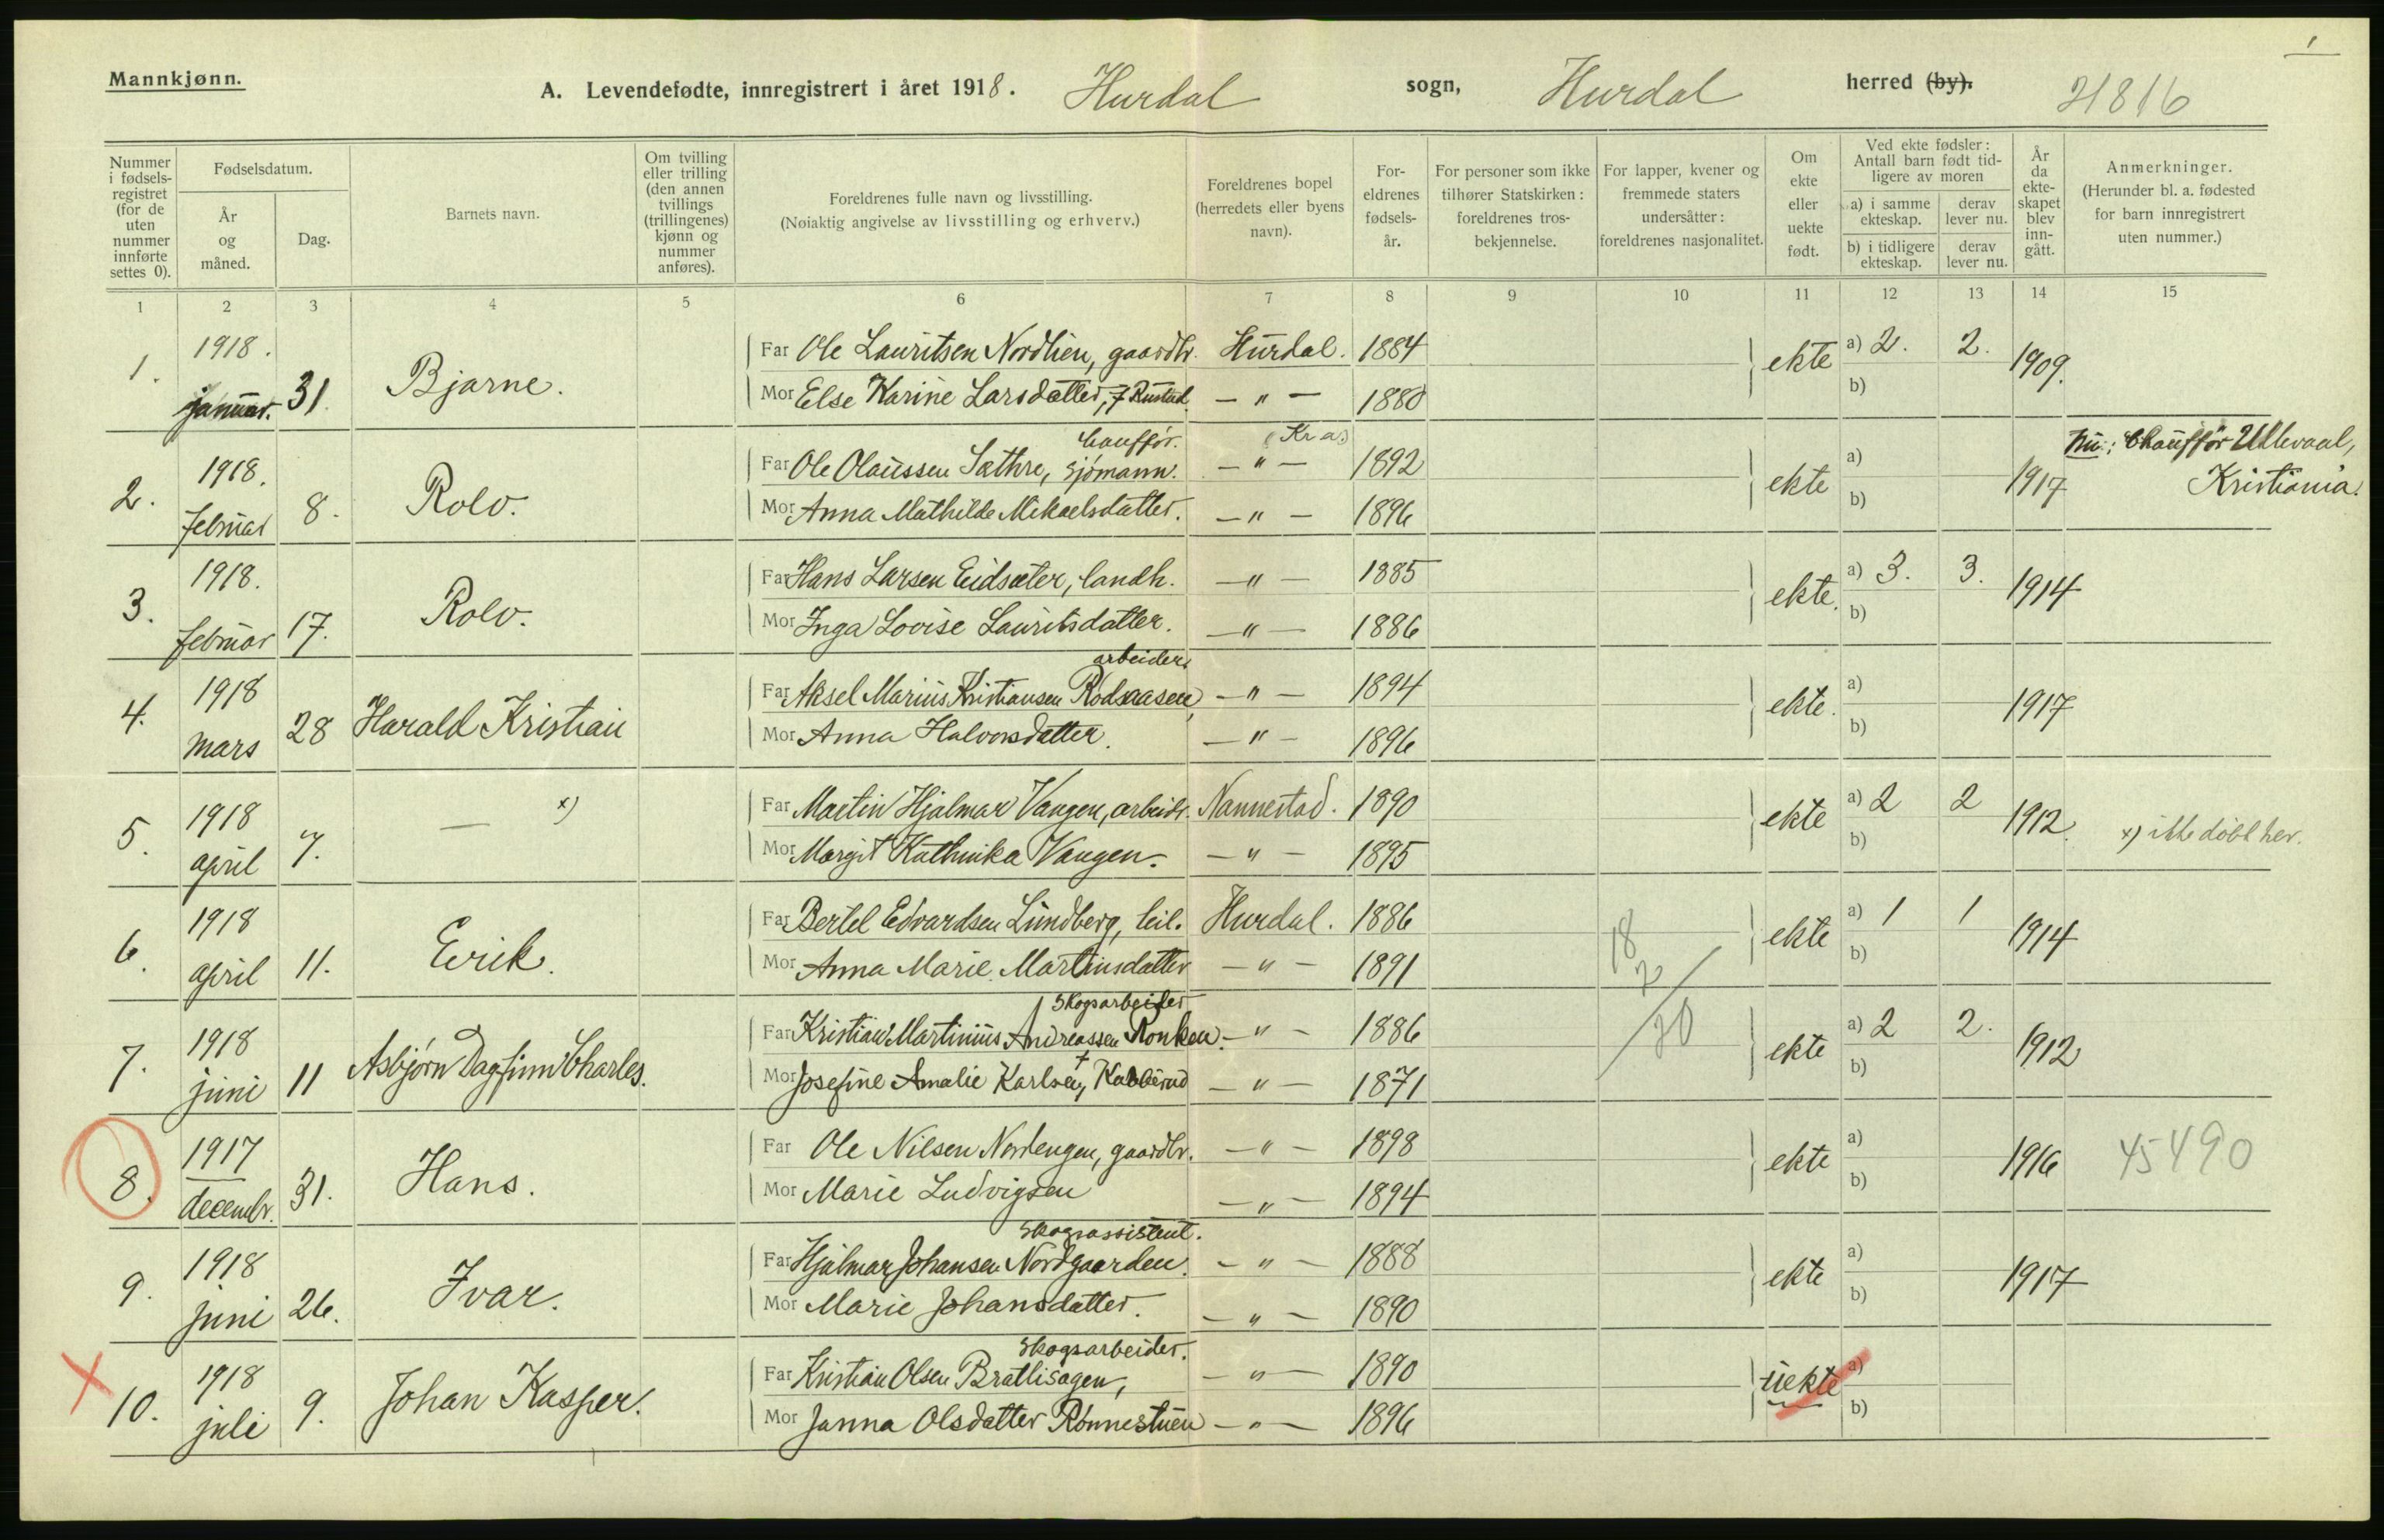 1
Mannkjønn.
A. Levendefødte, innregistrert i året 1918. Hurdal sogn, Hurdal herred (by). 21816
Nummer i fødsels-registret (for de uten nummer innførte settes 0).
Fødselsdatum.
År og måned.
Dag.
Barnets navn.
Om tvilling eller trilling (den annen tvillings (trillingenes) kjønn og nummer anføres).
Foreldrenes fulle navn og livsstilling.
(Nøiaktig angivelse av livsstilling og erhverv.)
Foreldrenes bopel (herredets eller byens navn).
For-eldrenes fødsels-år.
For personer som ikke tilhører Statskirken: foreldrenes tros-bekjennelse.
For lapper, kvener og fremmede staters undersåtter: foreldrenes nasjonalitet.
Om ekte eller uekte født.
Ved ekte fødsler: Antall barn født tid-ligere av moren
a) i samme ekteskap.
derav lever nu.
b) i tidligere ekteskap.
derav lever nu.
År da ekte-skapet blev inn-gått.
Anmerkninger.
(Herunder bl. a. fødested for barn innregistrert uten nummer.)
1 2 3 4 5 6 7 8 9 10 11 12 13 14 15
1. 1918. januar. 31. Bjarne.
Far Ole Lauritsen Nordlien, gaardbr. Hurdal. 1884 ekte a) 2. 2. 1909.
Mor Else Karine Larsdatter, f Rustad. — " — 1880 b)
chauffør. (Kr a.)
2. 1918. februar 8. Rolv.
Far Ole Olaussen Sæthre, sjømann. — " — 1892 ekte a) 1917 Nu: Chauffør Ullevaal, Kristiania.
Mor Anna Mathilde Mikaelsdatter. — " — 1896 b)
3. 1918. februar 17. Rolv.
Far Hans Larsen Eidsæter, landh. — " — 1885 ekte. a) 3. 3. 1914
Mor Inga Lovise Lauritsdatter. — " — 1886 b)
arbeider,
4. 1918 mars 28 Harald Kristian
Far Aksel Marius Kristiansen Rodsaasen — " — 1894 ekte. a) 1917
Mor Anna Halvorsdatter. — " — 1896 b)
5. 1918 april 7. — x)
Far Martin Hjalmar Vangen, arbeidr. Nannestad. 1890 ekte a) 2 2 1912. x) ikke døbt her.
Mor Margit Kathinka Vangen. — " — 1895 b)
6. 1918 april 11. Erik.
Far Bertel Edvardsen Lundberg, leil. Hurdal. 1886 ekte a) 1 1 1914
Mor Anna Marie Martinsdatter — " — 1891 18 b)
2/20
Skogsarbeider
7. 1918 juni 11 Asbjørn Dagfinn Charles.
Far Kristian Martinius Andreassen Ronken. — " — 1886 ekte a) 2 2. 1912
Mor Josefine Amalie Karlsen, — " — 1871 b)
8. 1917 decembr. 31. Hans.
Far Ole Nilsen Nordengen, gaardbr. — " — 1898 ekte a) 1916 45490
Mor Marie Ludvigsen — " — 1894 b)
Skogassistent.
9. 1918 juni 26. Ivar.
Far Hjalmar Johansen Nordgaarden. — " — 1888 ekte a) 1917
Mor Marie Johansdatter. — " — 1890 b)
Skogsarbeider.
X 10. 1918 juli 9. Johan Kasper.
Far Kristian Olsen Bratlisagen, — " — 1890 uekte a)
Mor Janna Olsdatter Rønnestuen — " — 1896 b)